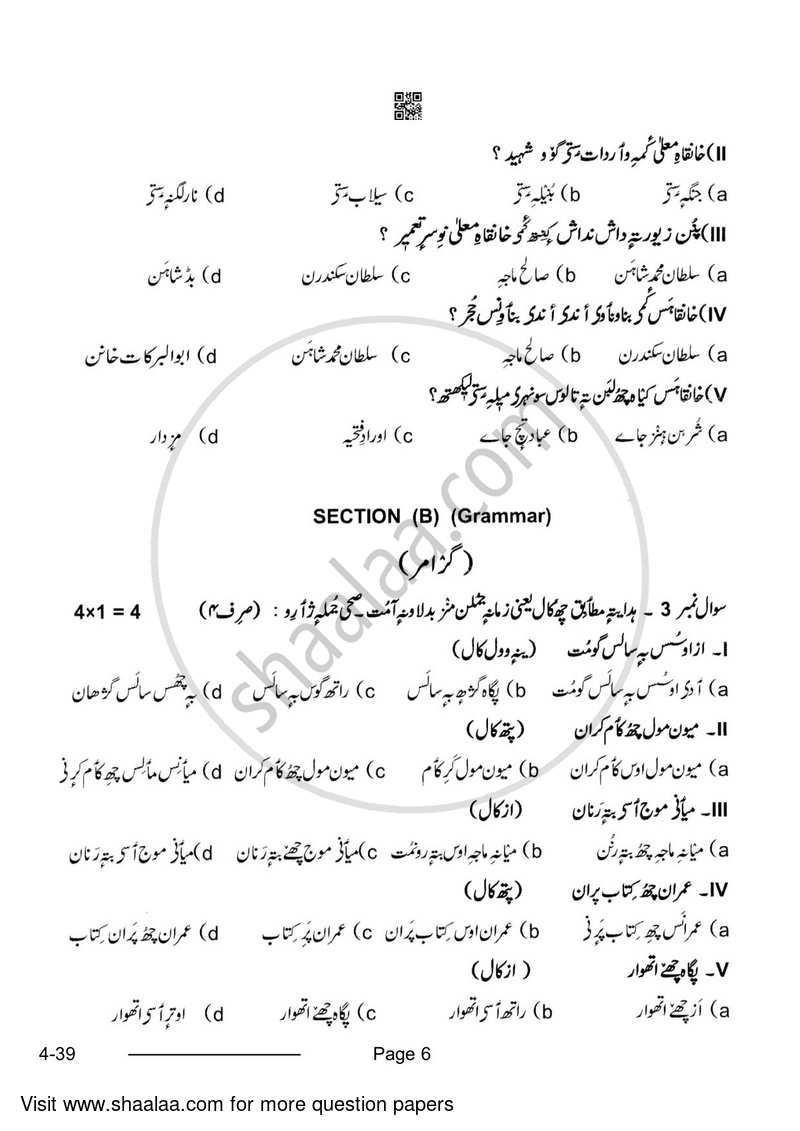 II) خانقاہِ معلیٰ کَمہِ وٲردات سۭتۍ گۆو شہید ؟
a) جنگہٕ سۭتۍ b) بُنِلہِ سۭتۍ c) سیلاب سۭتۍ d) نارلگنہٕ سۭتۍ
III) پنُن زیور تہٕ داش نداش کٔنِتھ کٔمۍ خانقاہِ معلیٰ نوِ سرٕ تعمیر ؟
a) سلطان محمد شاہن b) صالح ماجہِ c) سلطان سکندرن d) بڈشاہن
IV) خانقاہس کٔمۍ بناونٲوۍ أندۍ أندۍ بنٲونس حُجرٕ ؟
a) سلطان سکندرن b) صالح ماجہِ c) سلطان محمد شاہن d) ابوالبرکات خانن
V) خانقاہس کیٛاہ چھُ لبن تہٕ تالوس سونہری میلہِ سۭتۍ لیکھتھ؟
a) شُربن ہنٛز جاے b) عبادتچ جاے c) اورادِ فتحیہ d) مزدار
SECTION (B) (Grammar)
(گرامر)
سوال نمبر 3 ۔ ہدایتہٕ مطٲبق چھُ کال یعنی زمانہٕ جُملن منٛز بدلاونہٕ آمُت۔ صحی جُملہٕ ژٲرِو : (صرف ۴) 4×1 = 4
I۔ از اوسُس بہٕ سالس گومُت (ینہٕ وول کال)
a) آدۍ اوسُس بہٕ سالس گومُت b) پگاہ گژھہٕ بہٕ سالس c) راتھ گوس بہٕ سالس d) بہٕ چھُس سالس گژھان
II۔ میون مول چھُ کٲم کران (پتھ کال)
a) میون مول اوس کٲم کران b) میون مول کَرِ کٲم c) میون مول چھُ کٲم کران d) میٲنِس مٲلِس چھِ کٲم کرٕنۍ
III۔ میٲنۍ موج ٲسۍ بتہٕ رَنان (ازکال)
a) میٛانہِ ماجہِ چھُ بتہٕ رنُن b) میٛانہِ ماجہِ اوس بتہٕ رونمُت c) میٲنۍ موج چھےٚ بتہٕ رَنان d) میٲنۍ موج ٲسۍ بتہٕ رَنان
IV۔ عمران چھُ کتاب پران (پتھ کال)
a) عمرانس چھِ کتاب پَرٕنۍ b) عمران اوس کتاب پَران c) عمران پَرِ کتاب d) عمران چھُ پَران کتاب
V۔ پگاہ چھےٚ اتھوار (ازکال)
a) اَز چھےٚ اتھوار b) راتھ ٲسۍ اتھوار c) پگاہ چھےٚ اتھوار d) اوترٕ ٲسۍ اتھوار
4-39 Page 6
Visit www.shaalaa.com for more question papers
shaalaa.com